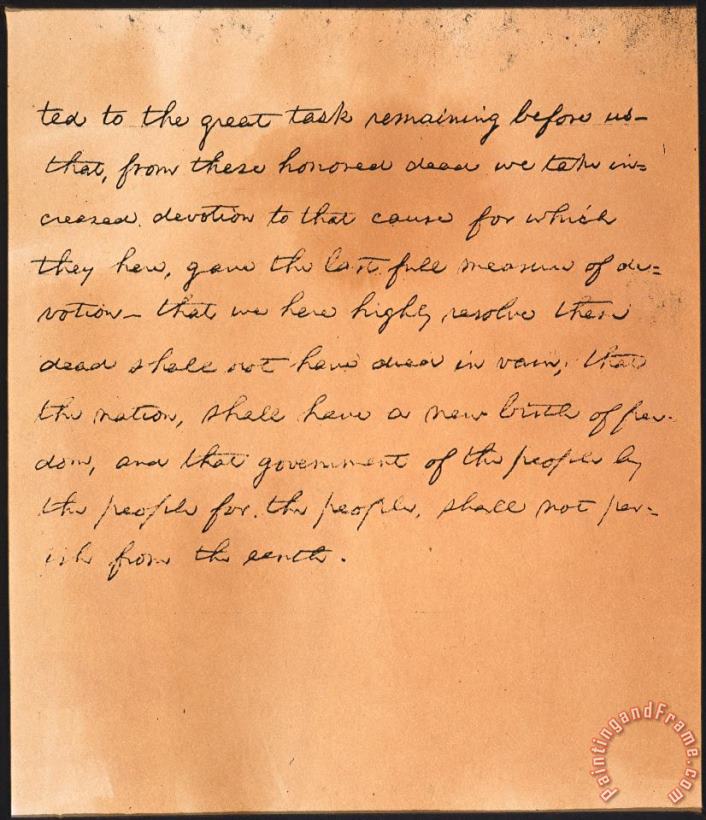 ted to the great task remaining before us—
that, from these honored dead we take in=
creased devotion to that cause for which
they here, gave the last full measure of de=
votion— that we here highly resolve these
dead shall not have died in vain; that
the nation, shall have a new birth of free-
dom, and that government of the people by
the people for the people, shall not per=
ish from the earth.
PaintingandFrame.com